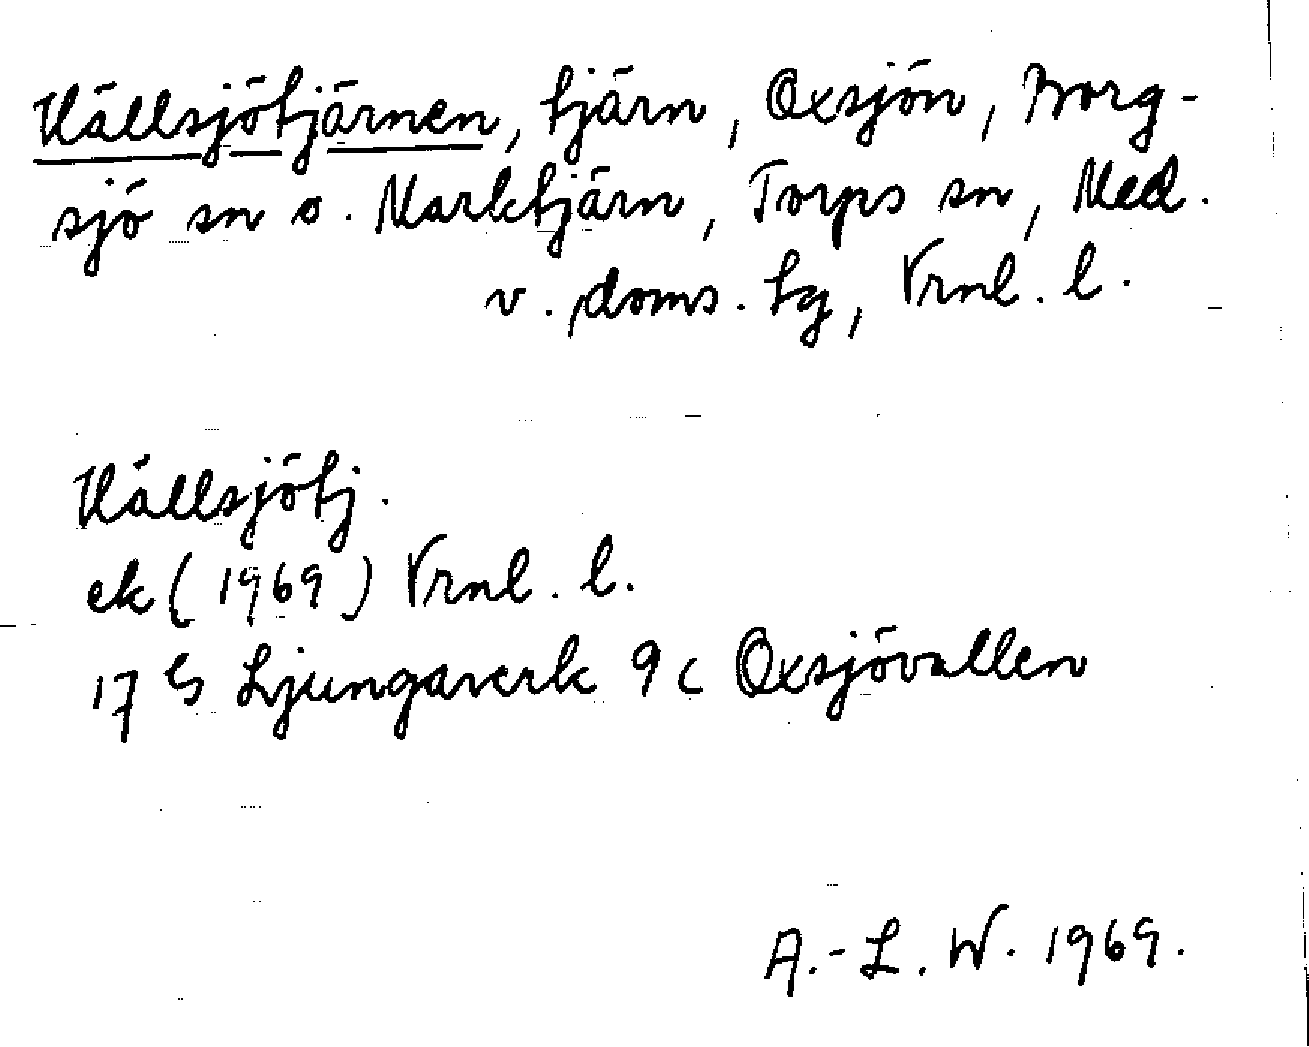 Källsjötjärnen, tjärn, Oxsjön, Borg-
sjö sn o. Marktjärn, Torps sn, Med.
v. doms. tg, Vrnl. l.
Källsjötj.
ek (1969) Vrnl. l.
17 G Ljungaverk 9 c Oxsjövallen
A.-L. W. 1969.